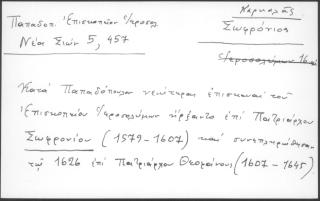 Χαρκαλᾶς
Παπαδοπ. Ἐπισκοπικὸν Ἱεροσολ. Σωφρόνιος
Νέα Σιών 5, 457
Ἱεροσολύμων
Κατὰ Παπαδόπουλον νεώτεραι ἐπισκευαὶ τοῦ
Ἐπισκοπικοῦ Ἱεροσολύμων ἤρξαντο ἐπὶ Πατριάρχου
Σωφρονίου (1579-1607) καὶ συνεπληρώθησαν
τῷ 1626 ἐπὶ Πατριάρχου Θεοφάνους (1607-1645)